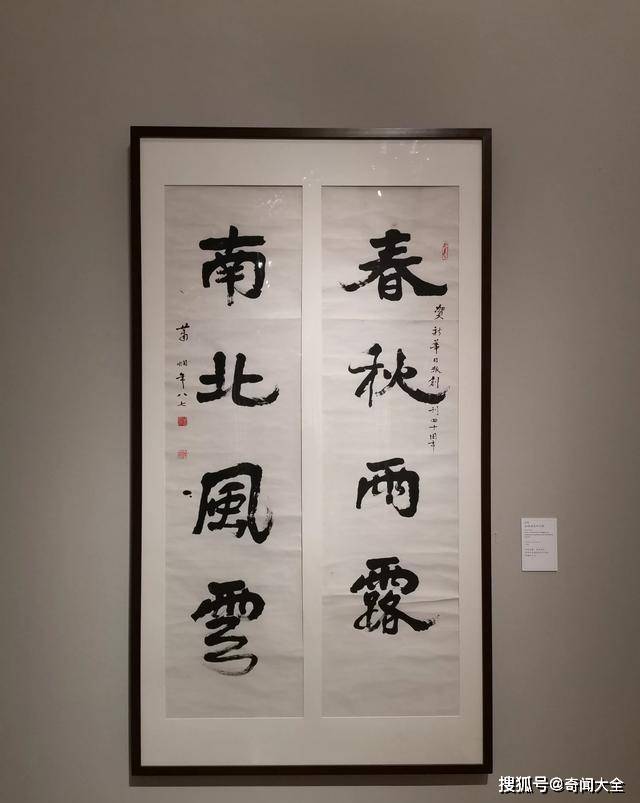 春秋雨露
賀新華日报創刊四十周年
南北風雲
蕭嫻年八七
搜狐号@奇闻大全